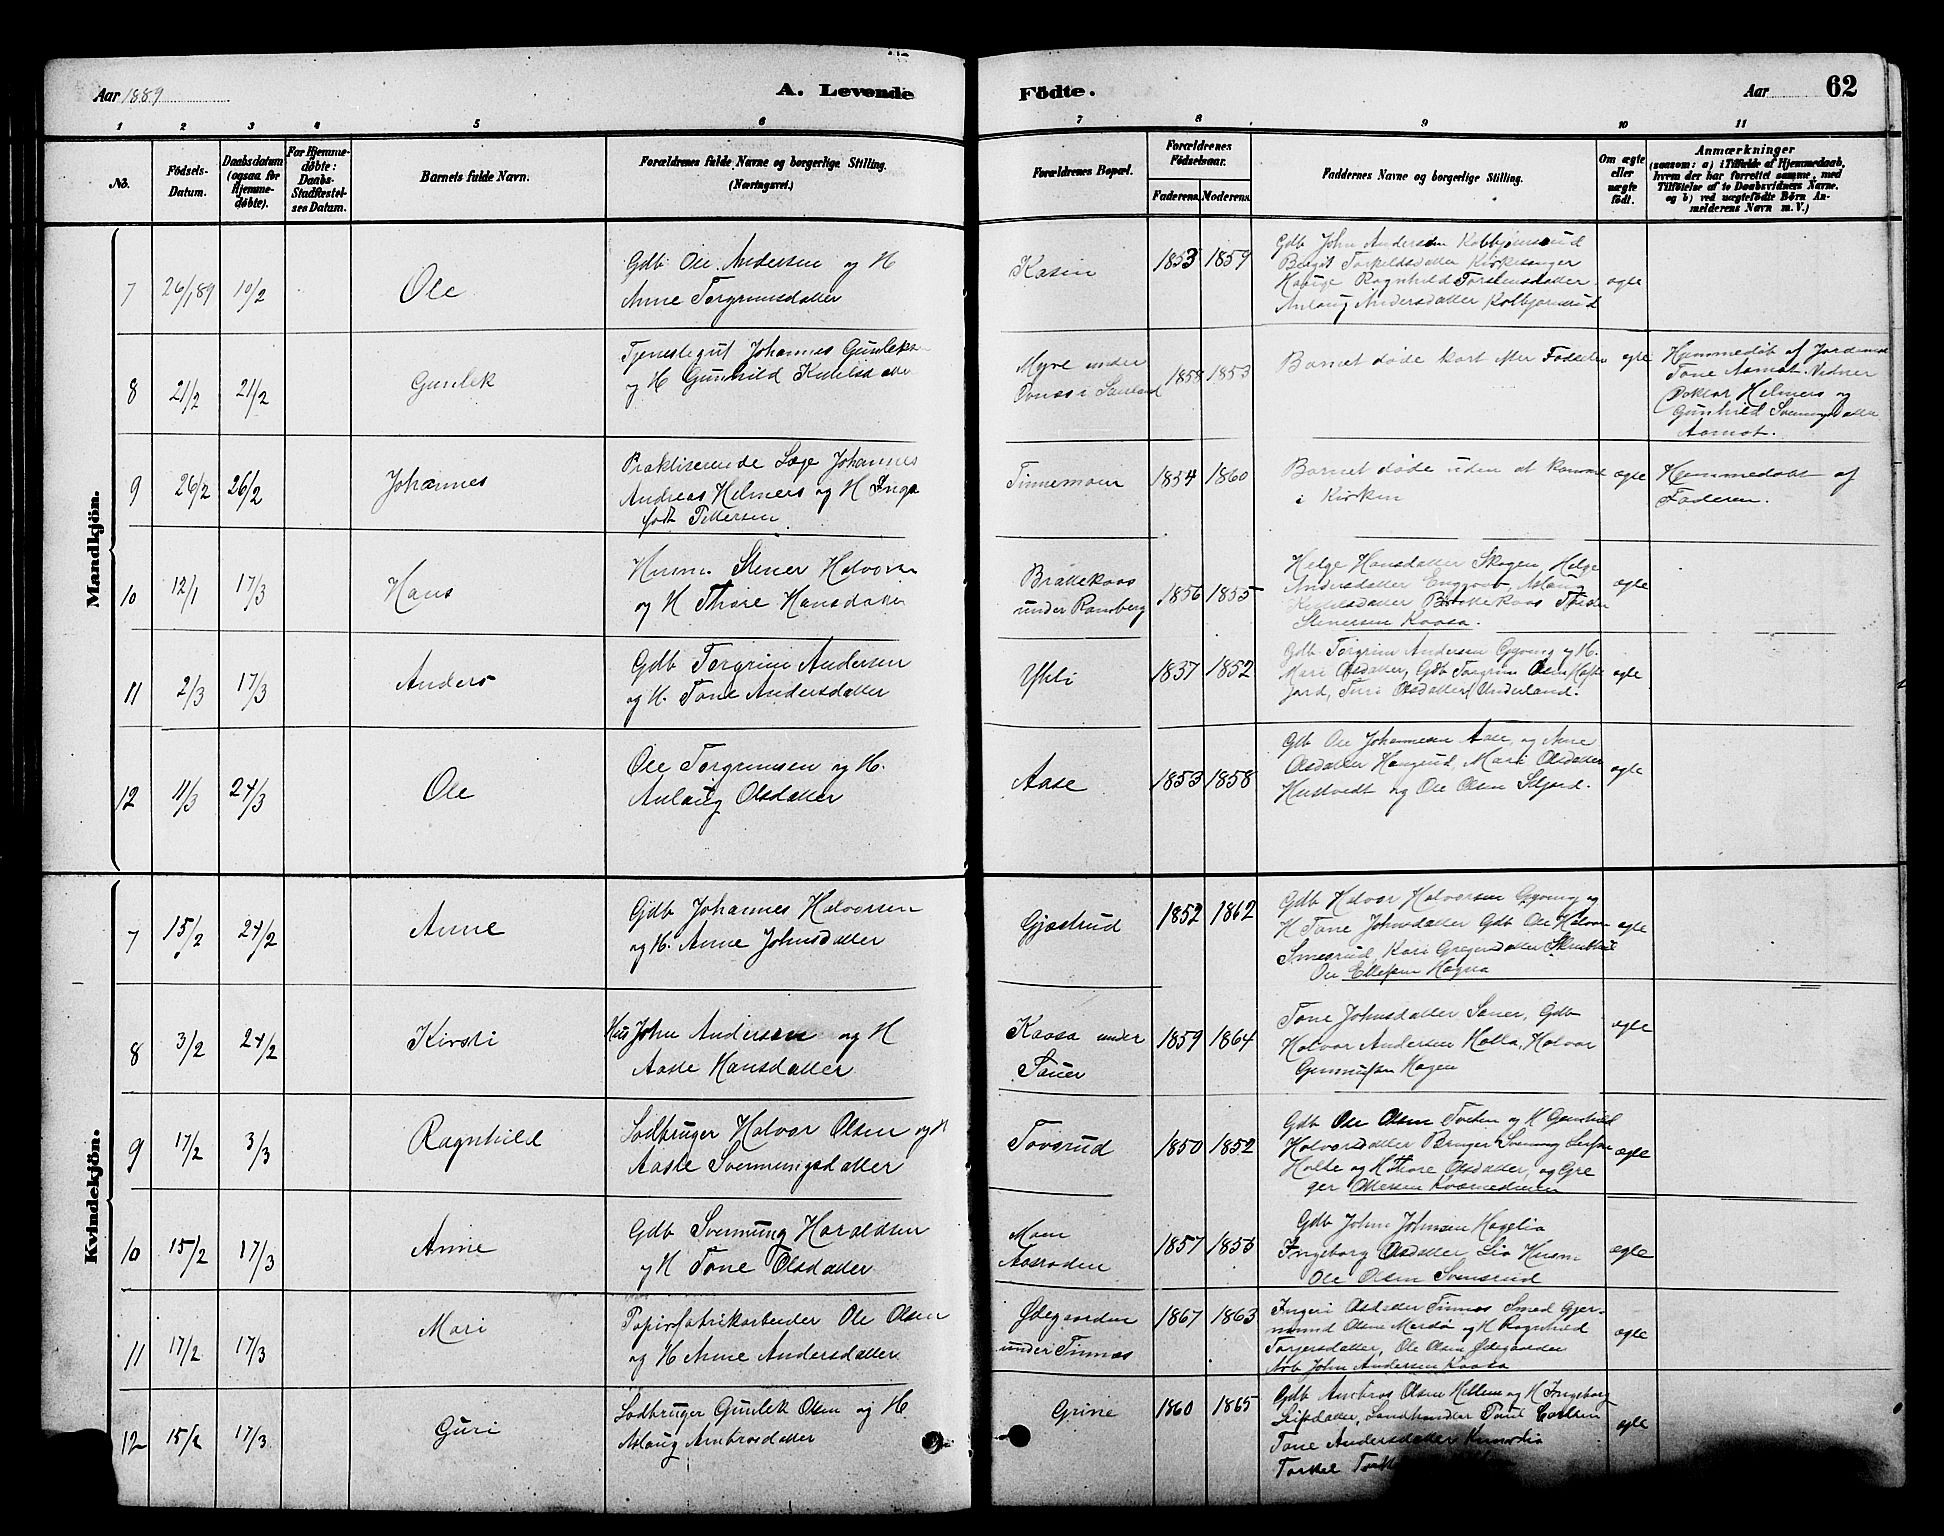 Aar 1889
A. Levende
Födte.
Aar
62
1 2 3 4 5 6 7 8 9 10 11
No.
Födsels-
Datum.
Daabsdatum
(ogsaa for
Hjemme-
døbte).
For Hjemme-
døbte:
Daabs-
Stadfæstel-
ses Datum.
Barnets fulde Navn.
Forældrenes fulde Navne og borgerlige Stilling.
(Næringsvei.)
Forældrenes Bopæl.
Forældrenes
Fødselsaar.
Faderens. Moderens.
Faddernes Navne og borgerlige Stilling.
Om ægte
eller
uægte
født.
Anmærkninger
(saasom: a) i Tilfælde af Hjemmedaab,
hvem der har forrettet samme, med
Tilføielse af to Daabsvidners Navne.
og b) ved uægtefødte Børn An-
melderens Navn m. V.)
Mandkjön.
7 26/1 89 10/2
Ole
Gdb Ole Andersen og H
Anne Torgrimsdatter
Kasin
1853 1859
Gdb John Andersen Kolbjørnsrud
Birgit Torkildsdatter Kirkesanger
Hauge Ragnhild Torstensdatter
Anlaug Andersdatter Kolbjørnsrud
ægte
8 21/2 21/2
Gunlek
Tjenestegut Johannes Gunleksen
og H Gunhild Kittilsdatter
Myre under
1858 1853
Barnet døde kort efter Fødselen
ægte
Hjemmedøbt af Jordemor
Tone Aamot. Vidner
Doktor Helmers og
Gunhild Svenungsdatter
Aamot.
9 26/2 26/2
Johannes
Praktiserende Læge Johannes
Andreas Helmers og H Inga
født Tellersen
Tinnemoen
1854 1860
Barnet døde uden at komme
i Kirken
ægte
Hjemmedøbt af
Faderen.
10 12/1 17/3
Hans
Husm. Stener Halvorsen
og H Thore Hansdatter
Brattekaas
under Ramberg
1856 1855
Helge Hansdatter Skogen, Helge
Andersdatter Enggrav Aslaug
Kittelsdatter Brattekaas
Stenersen Kaasa.
ægte
11 2/3 17/3
Anders
Gdb Torgrim Andersen
og H. Tone Andersdatter
Yhli
1837 1852
Gdb Torgrim Andersen Gyvung og H.
Mari Olsdatter, Gdb Torgrim Olsen
jord, Turi Olsdatter Underland.
ægte
12 11/3 24/3
Ole
Ole Torgrimsen og H.
Anlaug Olsdatter
Aase
1853 1858
Gdb Ole Johannesen Aase, og Anne
Olsdatter Haugrud, Mari Olsdatter
Hustvedt og Ole Olsen
ægte
Kvindekjön.
7 15/2 24/2
Anne
Gdb Johannes Halvorsen
og H. Anne Johnsdatter
Gjøstrud
1852 1862
Gdb Halvor Halvorsen Gyvung og
H Tone Johnsdatter Gdb Ole Halvor
Smesrud, Kari Gregersdatter
Ole Ellefsen Hagna
ægte
8 3/2 24/2
Kirsti
Hus John Andersen og H
Aasle Hansdatter
Kaasa under
Sauer
1859 1864
Tone Johnsdatter Sauer, Gdb
Halvor Andersen Holla, Halvor
Gunnufsen Hagen
ægte
9 17/2 3/3
Ragnhild
Lodbruger Halvor Olsen og H
Aasle Svennungsdatter
Tovsrud
1850 1852
Gdb Ole Olsen Tveten og H Gunhild
Halvorsdatter Bruger Svenung
Holte og H Thore Olsdatter, og Gre
ger Ottersen
ægte
10 15/2 17/3
Anne
Gdb Svennung Haraldsen
og H Tone Olsdatter
Moen
1857 1856
Gdb John Johnsen Hagelia
Ingeborg Olsdatter, Lio Husm
Ole Olsen Svensrud
ægte
11 17/2 17/3
Mari
Papirfabrikarbeider Ole Olsen
og H Anne Andersdatter
Ødegaarden
under Tinnes
1867 1863
Ingeri Olsdatter Tinnes Smed Gjer-
mund Olsen og H Ragnhild
Torjersdatter, Ole Olsen Ødegaarden
John Andersen Kaasa
ægte
12 15/2 17/3
Guri
Lodbruger Gunlek Olsen og H.
Aslaug Ambrosdatter
Grine
1860 1865
Gdb Ambros Olsen Hellem og H Ingeborg
Leifsdatter, Landhandler
Tone Andersdatter
Torkel
ægte